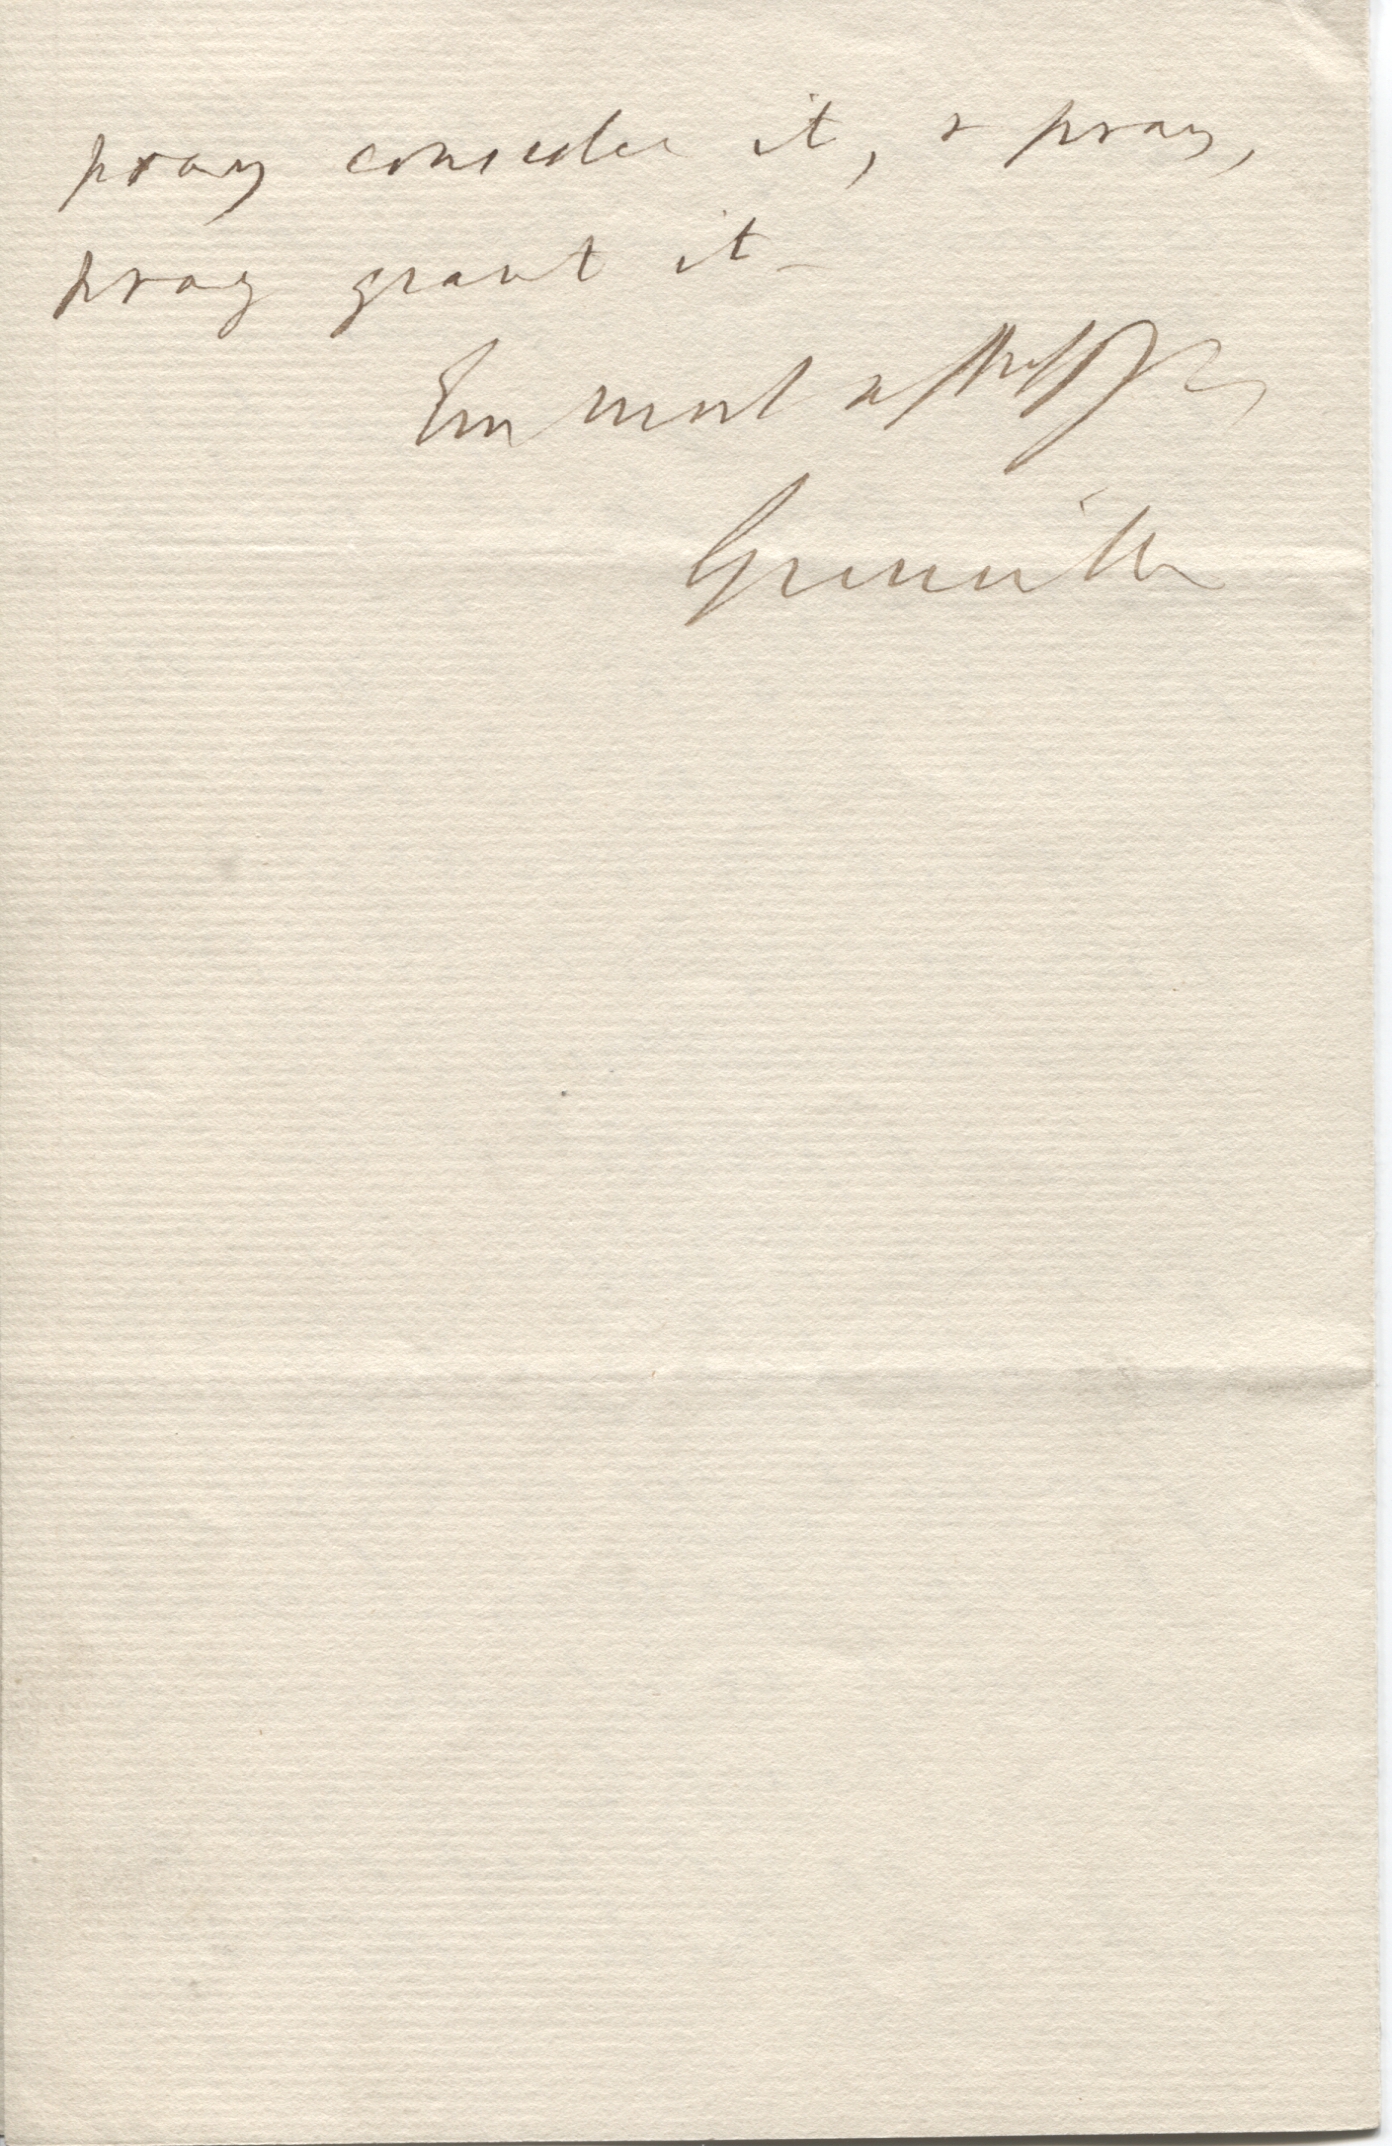 pray consider it, & pray,
pray grant it_
Ever most
Grenville